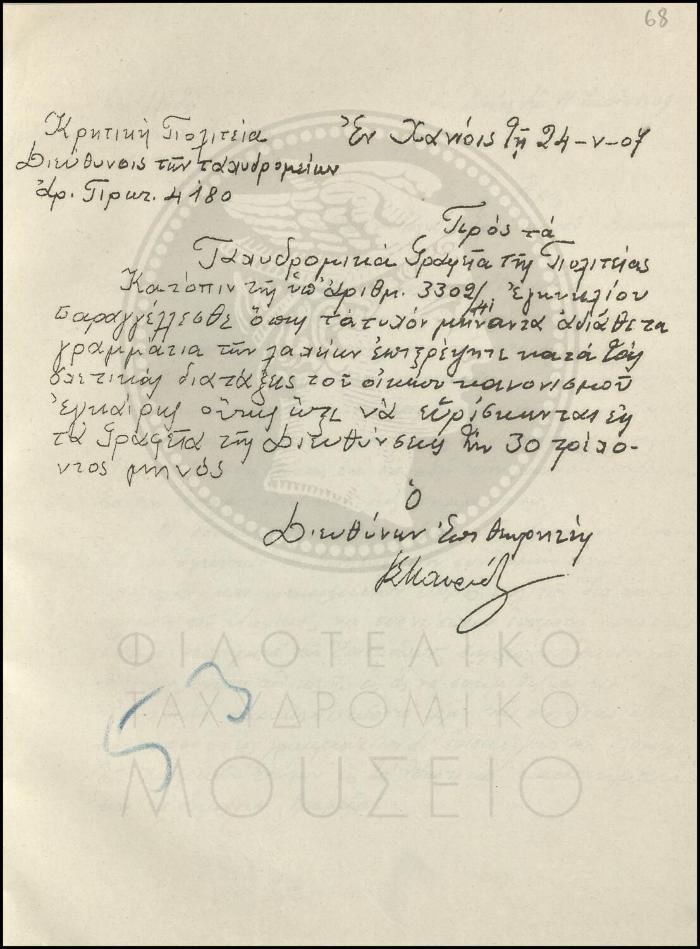 68
Κρητική Πολιτεία
Ἐν Χανίοις τῇ 24-V-07
Διεύθυνσις τῶν ταχυδρομείων
Ἀρ. Πρωτ. 4180
Πρός τά
Ταχυδρομικά Γραφεῖα τῆς Πολιτείας
Κατόπιν τῆς ὑπ' ἀριθμ. 3302/ Ἐγκυκλίου
παραγγέλλεσθε ὅπως τά τυχόν μείναντα ἀδιάθετα
γραμμάτια τῶν λαχείων ἐπιστρέψητε κατά τάς
σχετικάς διατάξεις τοῦ οἰκείου κανονισμοῦ
ἐγκαίρως οὕτως ὥστε νά εὑρίσκωνται εἰς
τά Γραφεῖα τῆς Διευθύνσεως τήν 30 τρέχο-
ντος μηνός
Ὁ
Διευθύνων Ἐπιθεωρητής
53
ΦΙΛΟΤΕΛΙΚΟ
ΤΑΧΥΔΡΟΜΙΚΟ
ΜΟΥΣΕΙΟ